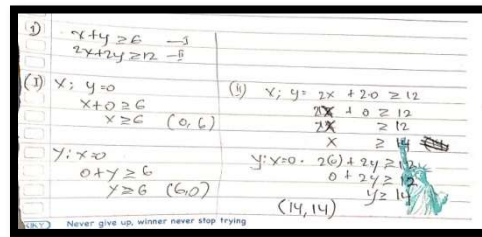 1)
x+y ≥ 6 —I
2x+2y ≥ 12 —II
(I) x; y=0
x+0 ≥ 6
x ≥ 6 (0,6)
y: x=0
0+y ≥ 6
y ≥ 6 (6,0)
(II) x; y= 2x + 2.0 ≥ 12
2x + 0 ≥ 12
2x ≥ 12
x ≥ 14
y: x=0. 2(0) + 2y ≥ 12
0 + 2y ≥ 12
y ≥ 14
(14,14)
Never give up, winner never stop trying